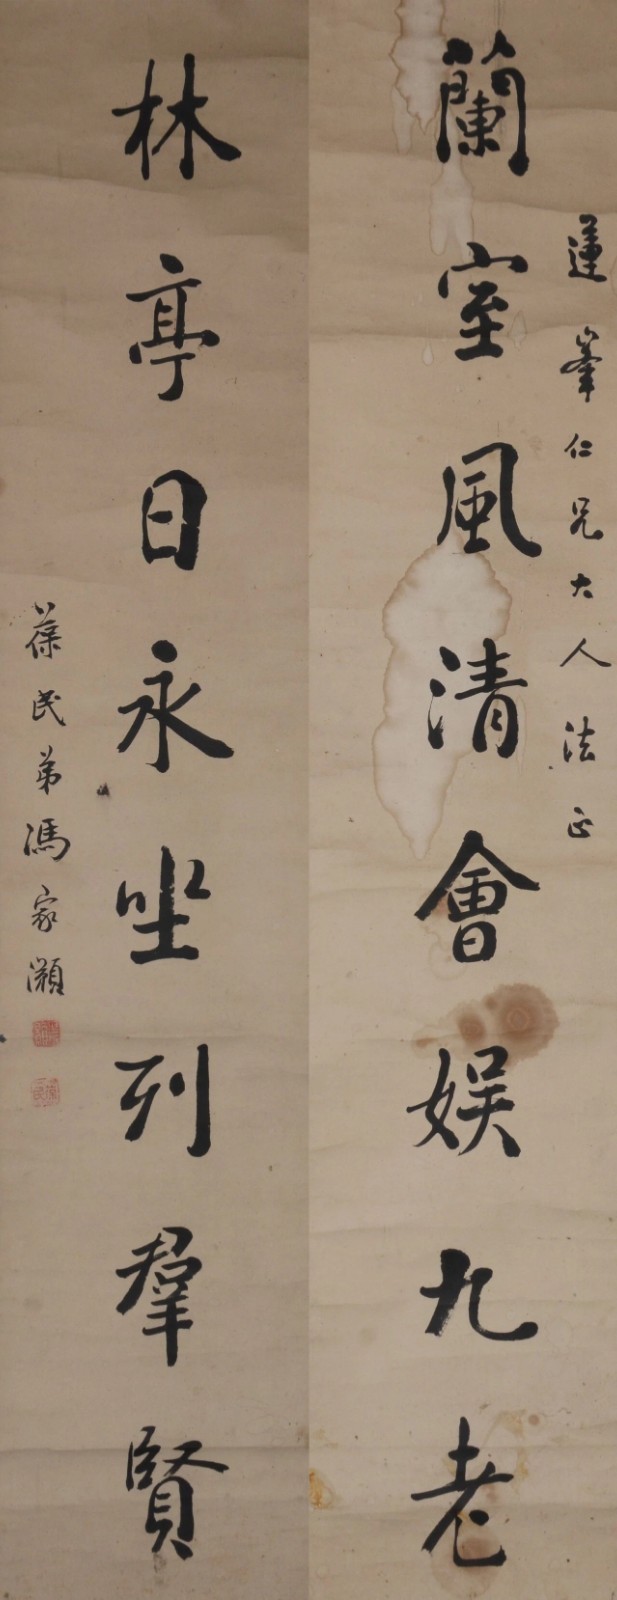 蓮峯仁兄大人法正
蘭室風清會娛九老
林亭日永坐列羣賢
葆民弟馮家灝